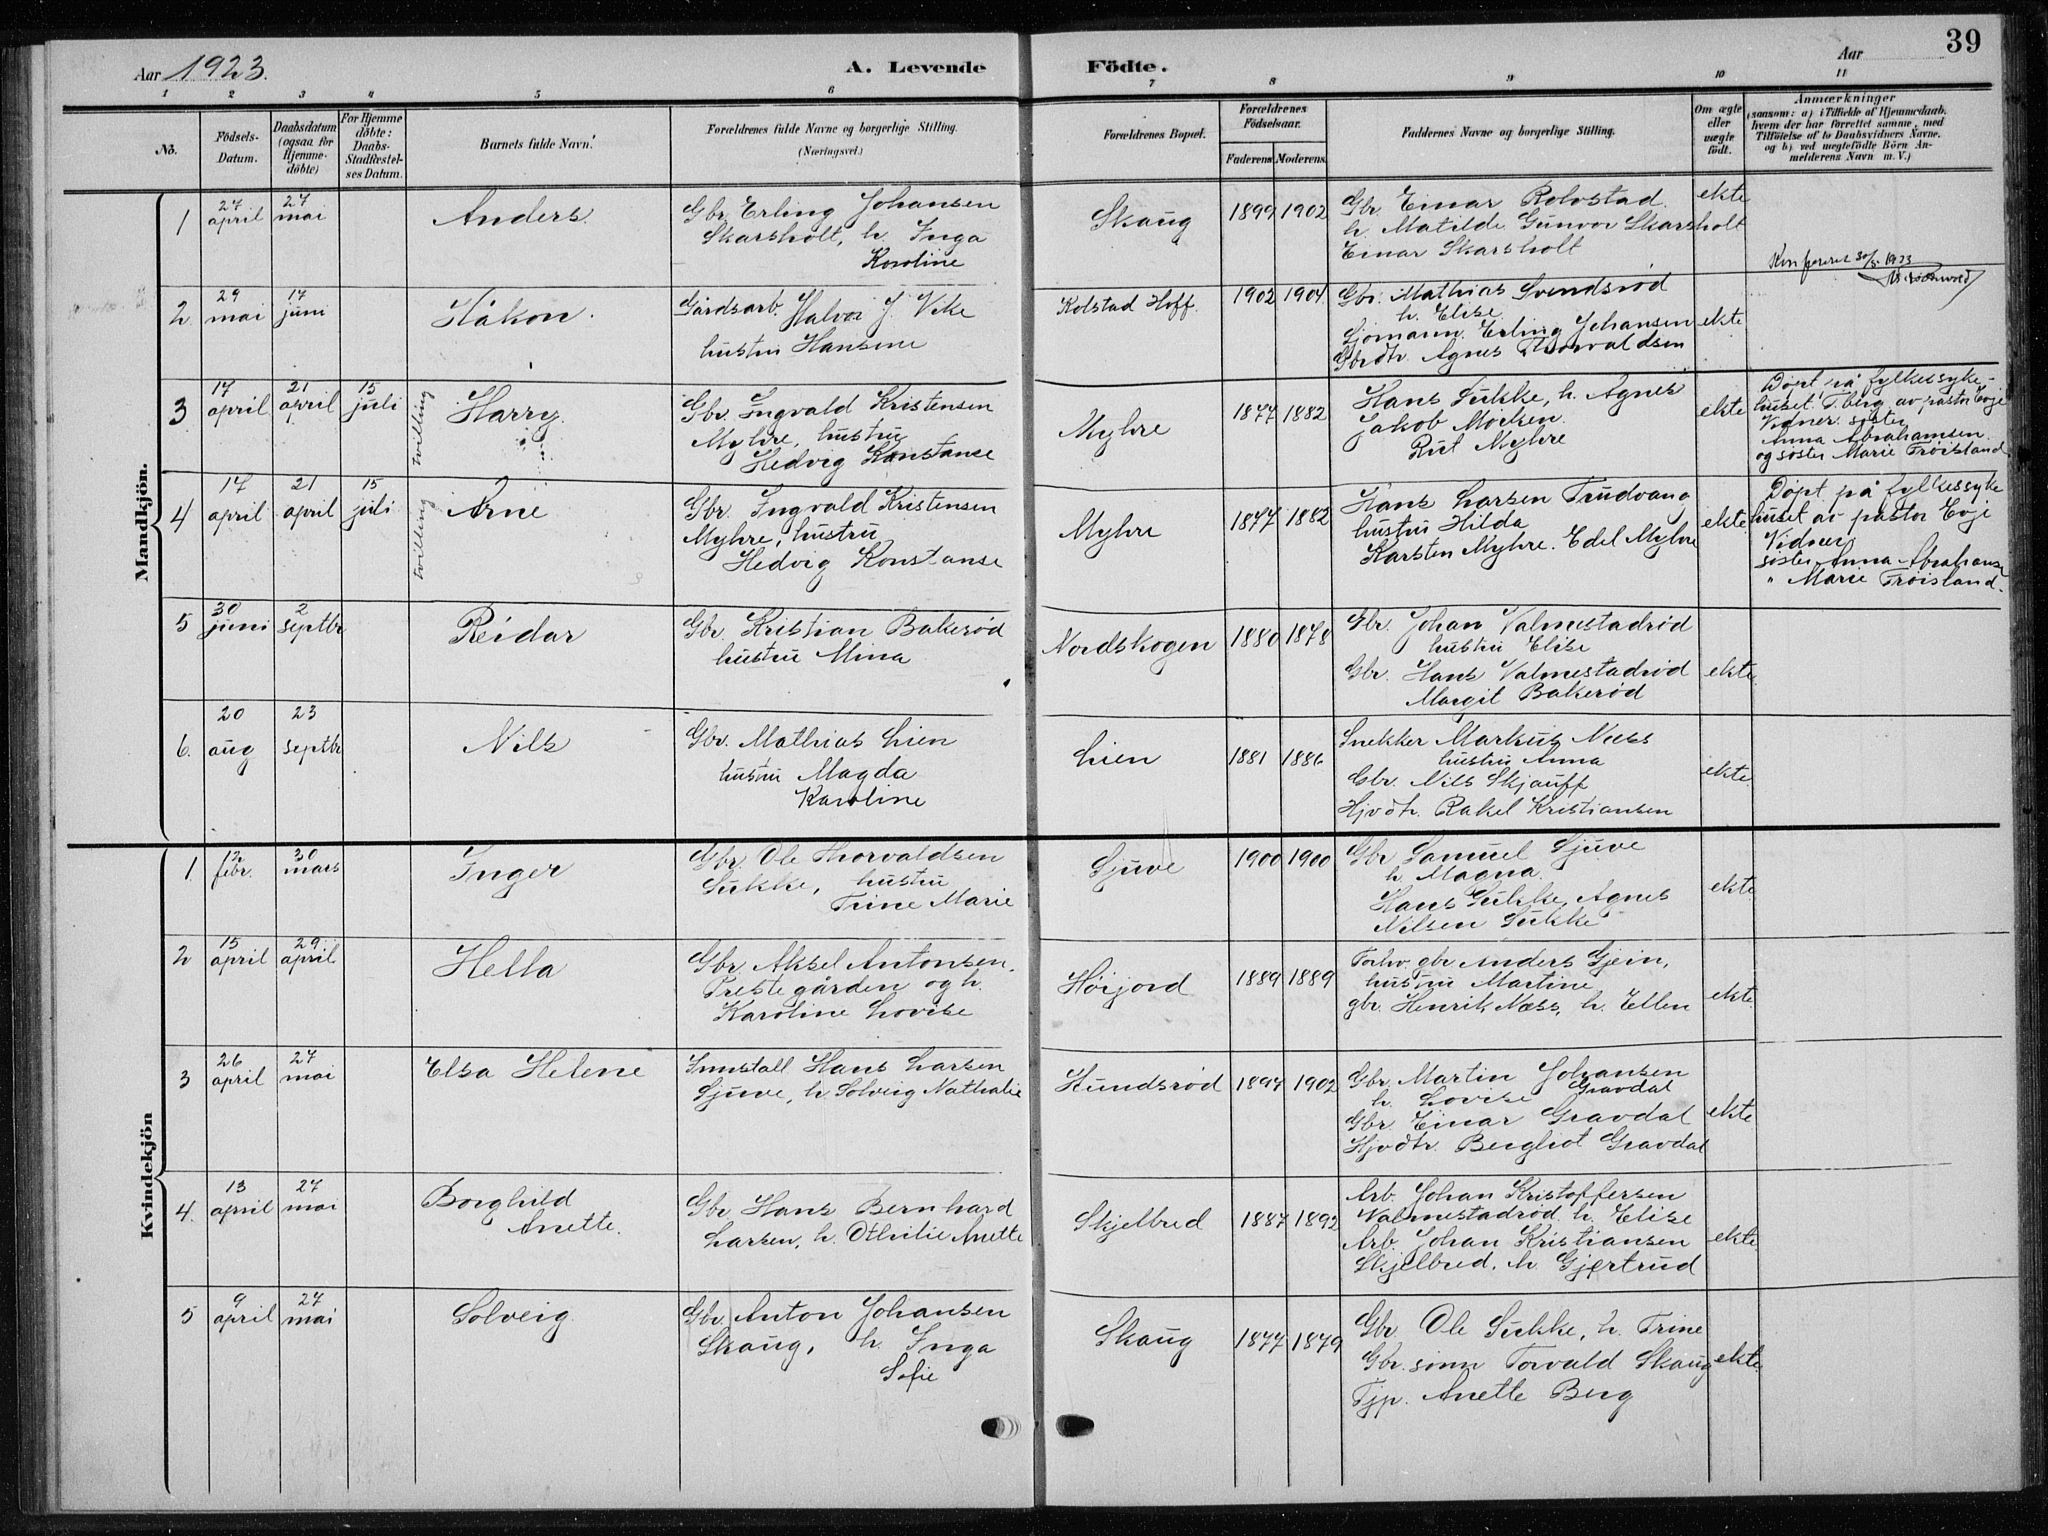 39
Aar 1923.
A. Levende Födte.
Aar
1 2 3 4 5 6 7 8 9 10 11
No.
Födsels-
Datum.
Daabsdatum
(ogsaa for
Hjemme-
döbte)
For Hjemme
döbte:
Daabs-
Stadfæstel-
ses Datum.
Barnets fulde Navn.
Forældrenes fulde Navne og borgerlige Stilling.
(Næringsvei.)
Forældrenes Bopæl.
Forældrenes
Födselsaar.
Faderens. Moderens.
Faddernes Navne og borgerlige Stilling.
Om ægte
eller
uægte
födt.
Anmærkninger
(saasom: a) i Tilfælde af Hjemmedaab.
hvem der har forrettet samme, med
Tilföielse af to Daabsvidners Navne.
og b) ved uægtefödte Börn An-
melderens Navn m. V.)
Mandkjön.
1
27
april
27
mai
Anders.
Gbr. Erling Johansen
Skarsholt, h. Inga
Karoline
Skaug
1899 1902
Gbr. Einar Rolvstad
h. Matilde Gunvor Skarsholt
Einar Skarsholt
ekte
Konfereret 30/5 1923
2
29
mai
17
juni
Håkon.
Gårdsarb. Halvor J. Vike
hustru Hansine
Kolstad Hoff.
1902 1904
Gbr. Mathias Svendsrød
h. Elise
Sjømann. Erling Johansen
Gbrdtr. Agnes Thorvaldsen
ekte
3
17
april
21
april
15
juli
tvilling
Harry.
Gbr. Ingvald Kristensen
Myhre, hustru
Hedvig Konstanse
Myhre
1877 1882
Hans Sukke, h. Agnes
Jakob Morken.
Rut Myhre
ekte
Døpt på fylkessyke-
huset T.berg av pastor Evje
Vidner: søster
Anna Abrahamsen
og søster Marie Trøisland
4
17
april
21
april
15
juli
tvilling
Arne
Gbr. Ingvald Kristensen
Myhre, hustru
Hedvig Konstanse
Myhre
1877 1882
Hans Larsen Trudvang
hustru Hilda
Karsten Myhre. Edel Myhre
ekte
Døpt på fylkessyke
huset av pastor Evje
Vidner:
søster Anna Abrahamse
" Marie Trøisland.
5
30
juni
2
septbr
Reidar
Gbr. Kristian Bakerød
hustru Mina
Nordskogen
1880 1878
Gbr. Johan Valmestadrød
hustru Elise
Gbr. Hans Valmestadrød
Margit Bakerød
ekte
6.
20
aug
23
septbr
Nils
Gbr. Mathias Lien
hustru Magda
Karoline
Lien
1881 1886
Snekker Markus Næss
hustru Anna
Gbr. Nils Skjauff
Hjvdtr. Rakel Kristiansen
ekte
Kvindekjön
1.
12
febr.
30
mars
Inger
Gbr Ole Thorvaldsen
Sukke, hustru
Trine Marie
Sjuve
1900 1900
Gbr Samuel Sjuve
h. Magna.
Hans Sukke, Agnes
Nilsen Sukke
ekte
2
15
april
29
april
Hella
Gbr Aksel Antonsen,
Prestegården og h.
Karoline Lovise
Hørjord
1889 1889
Forhv. gbr Anders Gjein,
hustru Martine
gbr. Henrik Næss, h. Ellen
ekte
3
26
april
27
mai
Elsa Helene
Innstall Hans Larsen
Sjuve, h Solveig Nathalie
Hundsrød
1897 1902
Gbr. Martin Johansen
Gravdal
h. Lovise
Gbr. Einar Gravdal
Hjvdtr. Bergliot Gravdal
ekte
4.
13
april
27
mai
Borghild
Anette.
Gbr Hans Bernhard
Larsen, h. Othilie Anette
Skjelbred
1887 1892
Arb. Johan Kristoffersen
Valmestadrød. h. Elise
Arb. Johan Kristiansen
Skjelbred. h. Gjertrud
ekte
5
9
april
27
mai
Solveig
Gbr. Anton Johansen
Skaug, h. Inga
Sofie
Skaug
1877 1879
Gbr. Ole Sukke, h. Trine
Gbr. sønn Torvald Skaug
Tjp. Anette Berg
ekte.